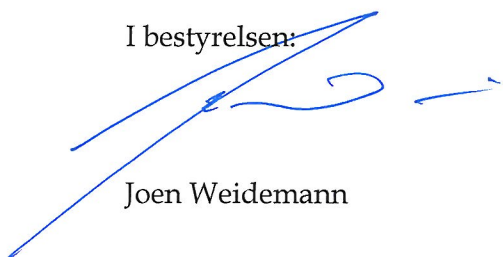 I bestyrelsen:
Joen Weidemann